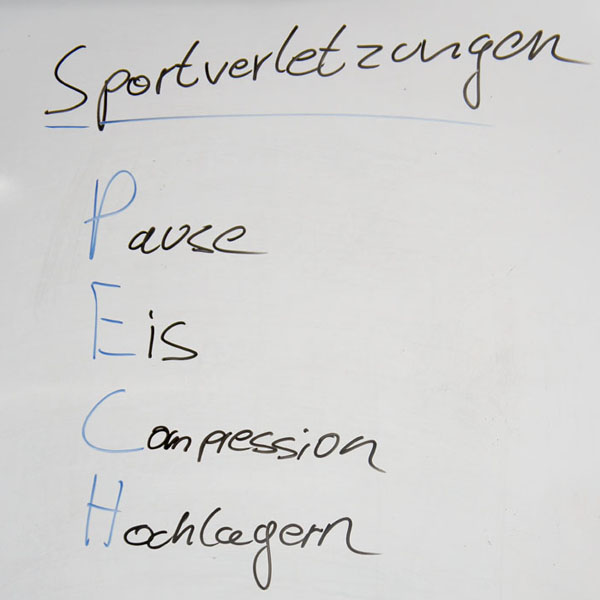 Sportverletzungen
Pause
Eis
Compression
Hochlagern